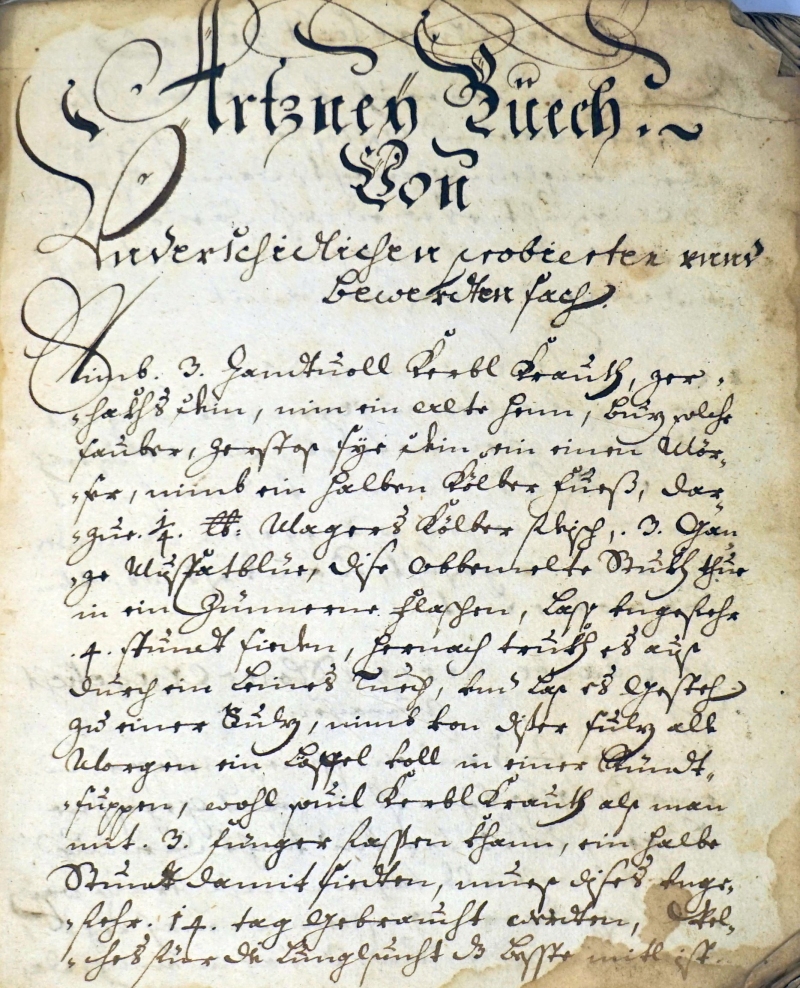 Artzney Büech.
Von
Underschidlichen probierten vnnd
bewerdten sach.
Nimb. 3. Handtuoll Kerbl Krauth, zer-
-hakhs klein, nim ein alte Henn, buz solche
sauber, zerstoß sye klein, in einen Mör-
-ser, nimb ein halben Kölber Fueß, dar-
-zue. 1/4. ℔: Magers Kölber fleisch, . 3. Gan-
-ze Muschatblüe, dise obbemelte Stukh thue
in ein Zünnerne Flaschen, lass vngefehr
.4. stundt sieden, hernach trukh es auß
durch ein leines Tuech, vnd laß es gesteh
zu einer Sulz, nimb von diser sulz alle
Morgen ein Löffel voll in einer Rindt-
-suppen, wohl souil Kerbl Krauth alß man
mit. 3. finger fassen khann, ein halbe
Stundt damit siedten, mueß dises vnge-
-fehr. 14. tag gebraucht werdten, Wel-
-ches für die Lunglsucht dz beste mitl ist.